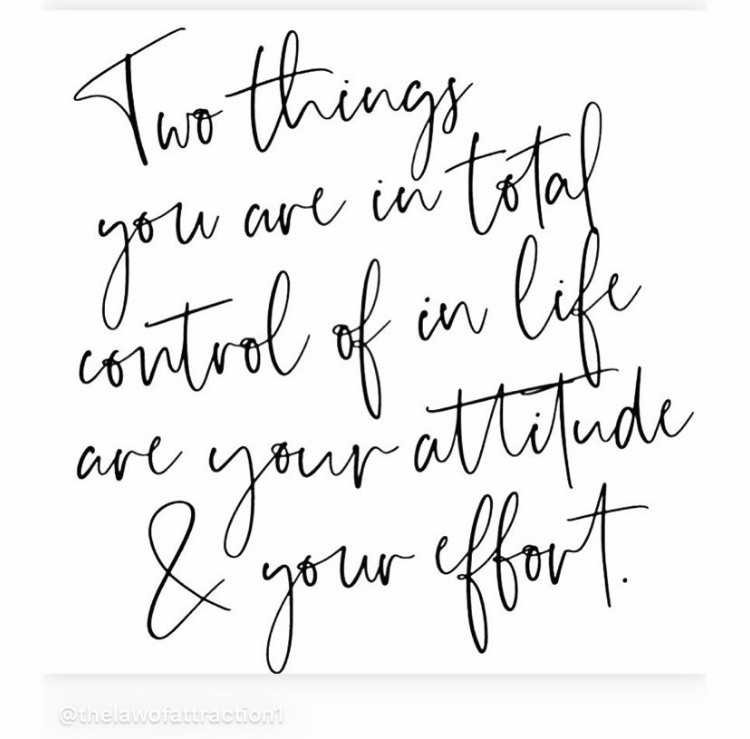 Two things
you are in total
control of in life
are your attitude
& your effort.
@thelawofattraction1